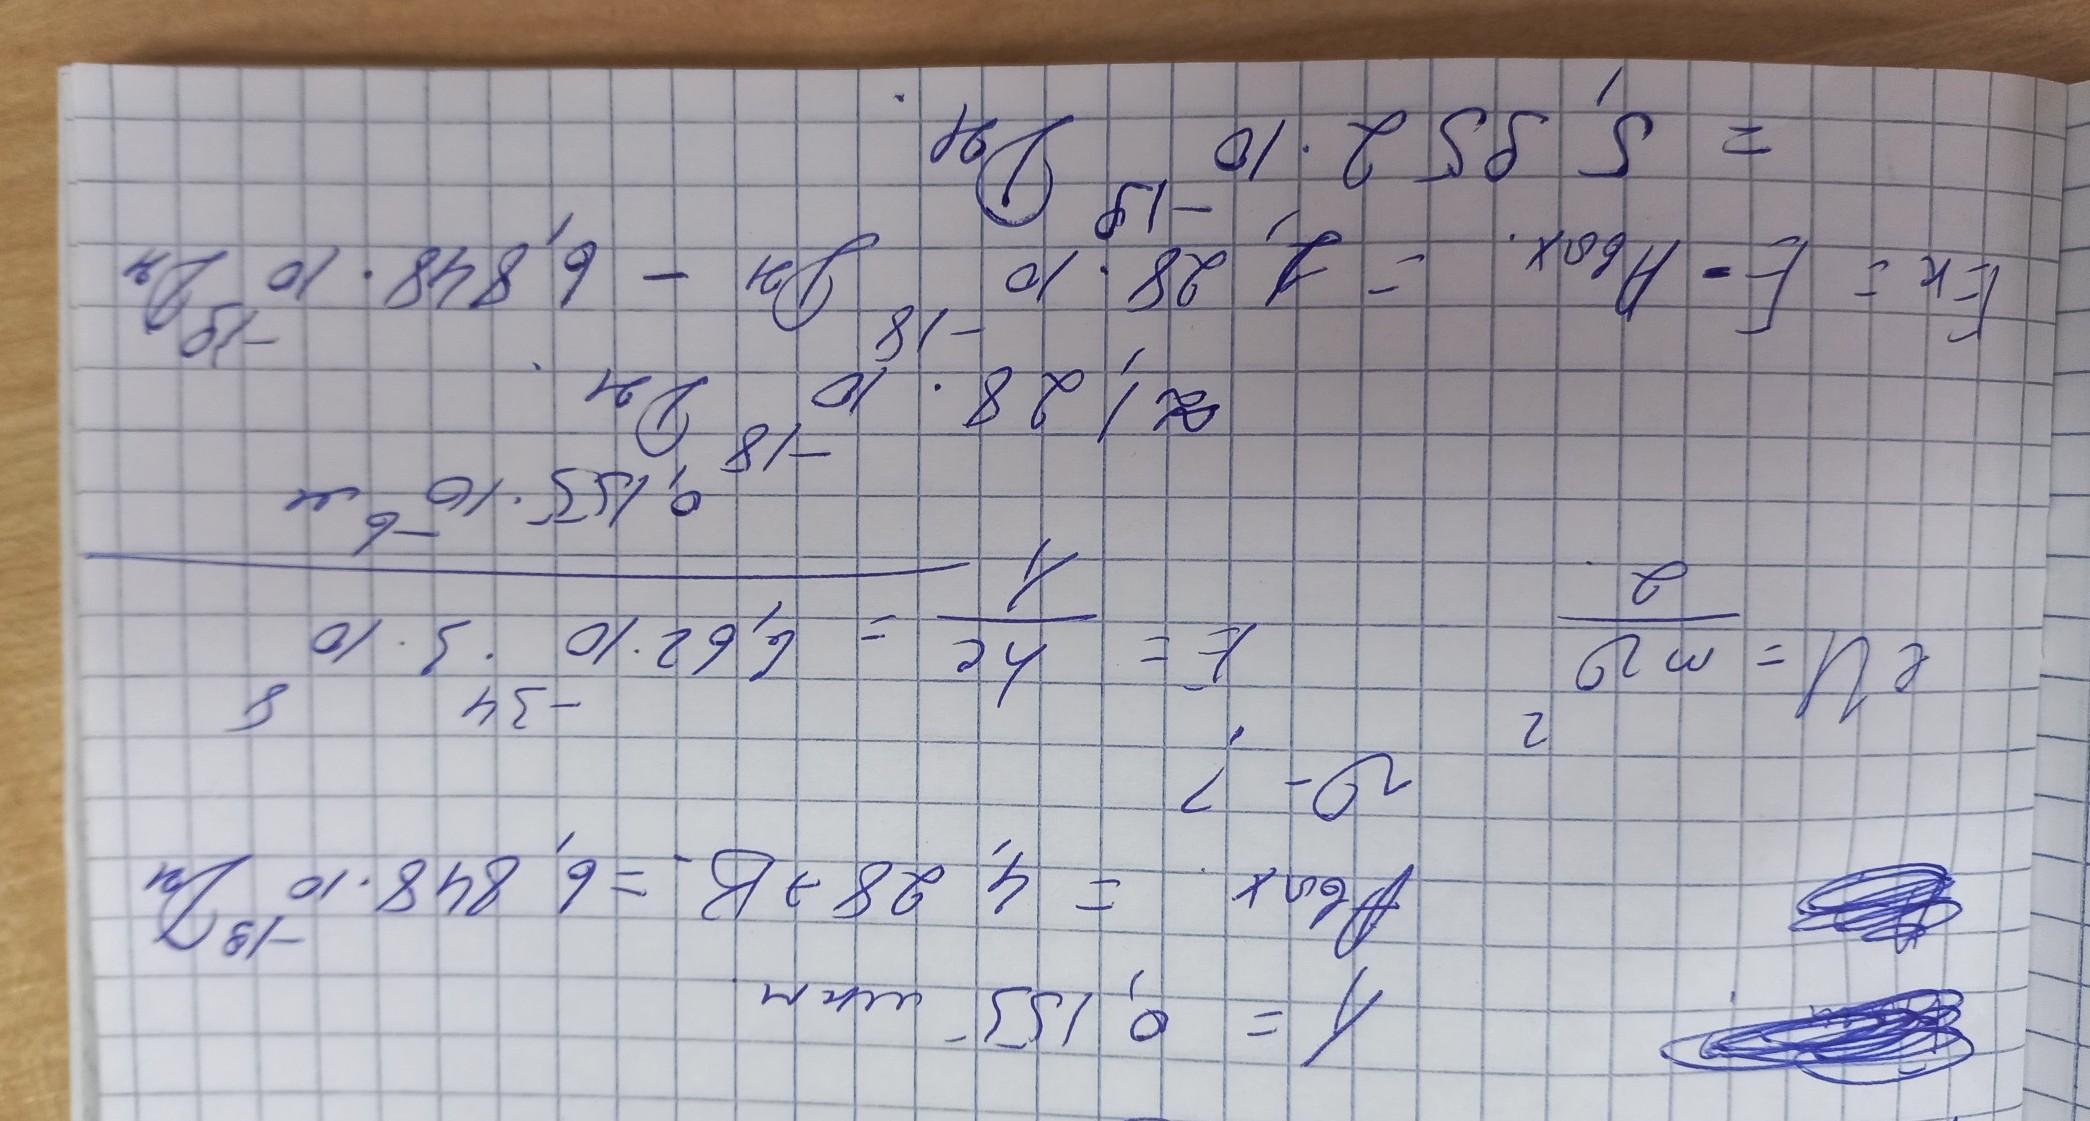 λ = 0,155 мкм
Aвых. = 4,28 эВ = 6,848·10⁻¹⁹ Дж
υ - ?
eU = mυ²/2
E = hc/λ = 6,62·10⁻³⁴·3·10⁸/0,155·10⁻⁶ м
≈ 1,28·10⁻¹⁸ Дж.
Eк = E - Aвых. = 1,28·10⁻¹⁸ Дж - 6,848·10⁻¹⁹ Дж
= 5,952·10⁻¹⁹ Дж.